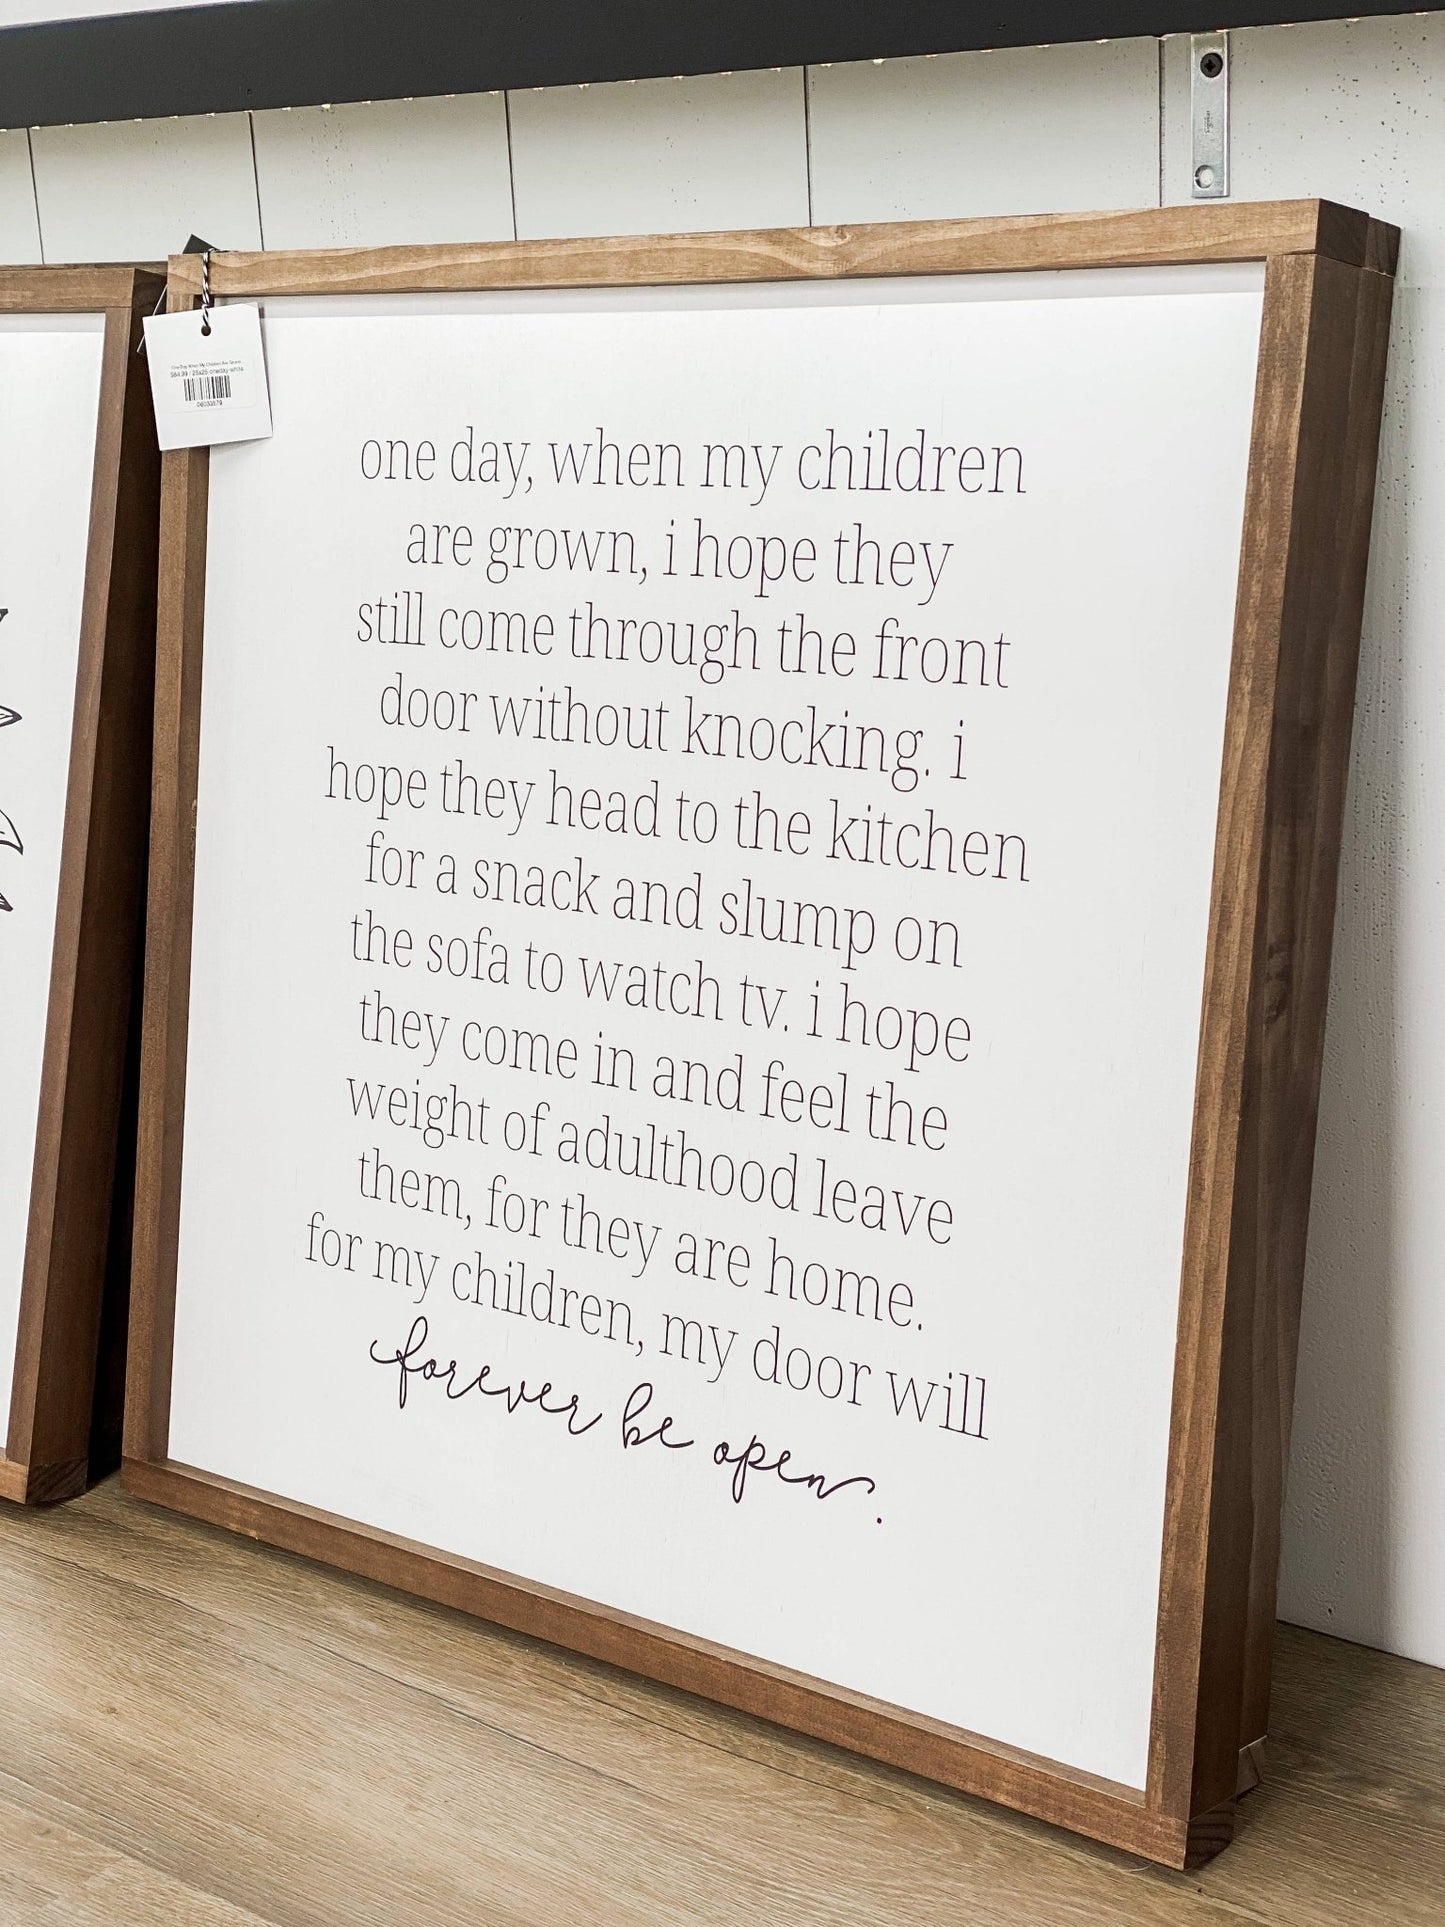 One Day When My Children Are Grown
$84.99 / 25x25-oneday-white
one day, when my children
are grown, i hope they
still come through the front
door without knocking. i
hope they head to the kitchen
for a snack and slump on
the sofa to watch tv. i hope
they come in and feel the
weight of adulthood leave
them, for they are home.
for my children, my door will
forever be open.